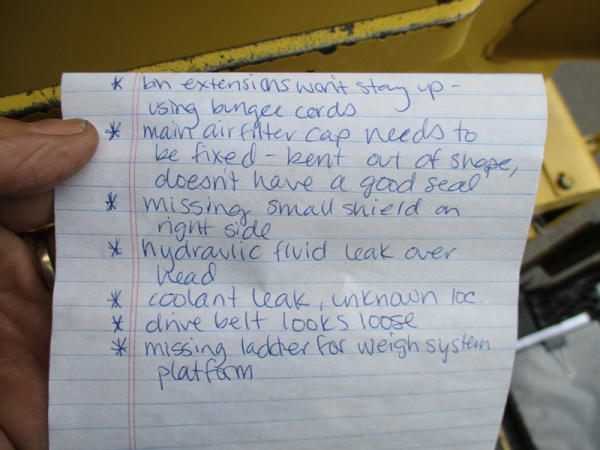 * bin extensions won't stay up -
using bungee cords
* main air filter cap needs to
be fixed - bent out of shape,
doesn't have a good seal
* missing small shield on
right side
* hydraulic fluid leak over
head
* coolant leak, unknown loc.
* drive belt looks loose
* missing ladder for weigh system
platform